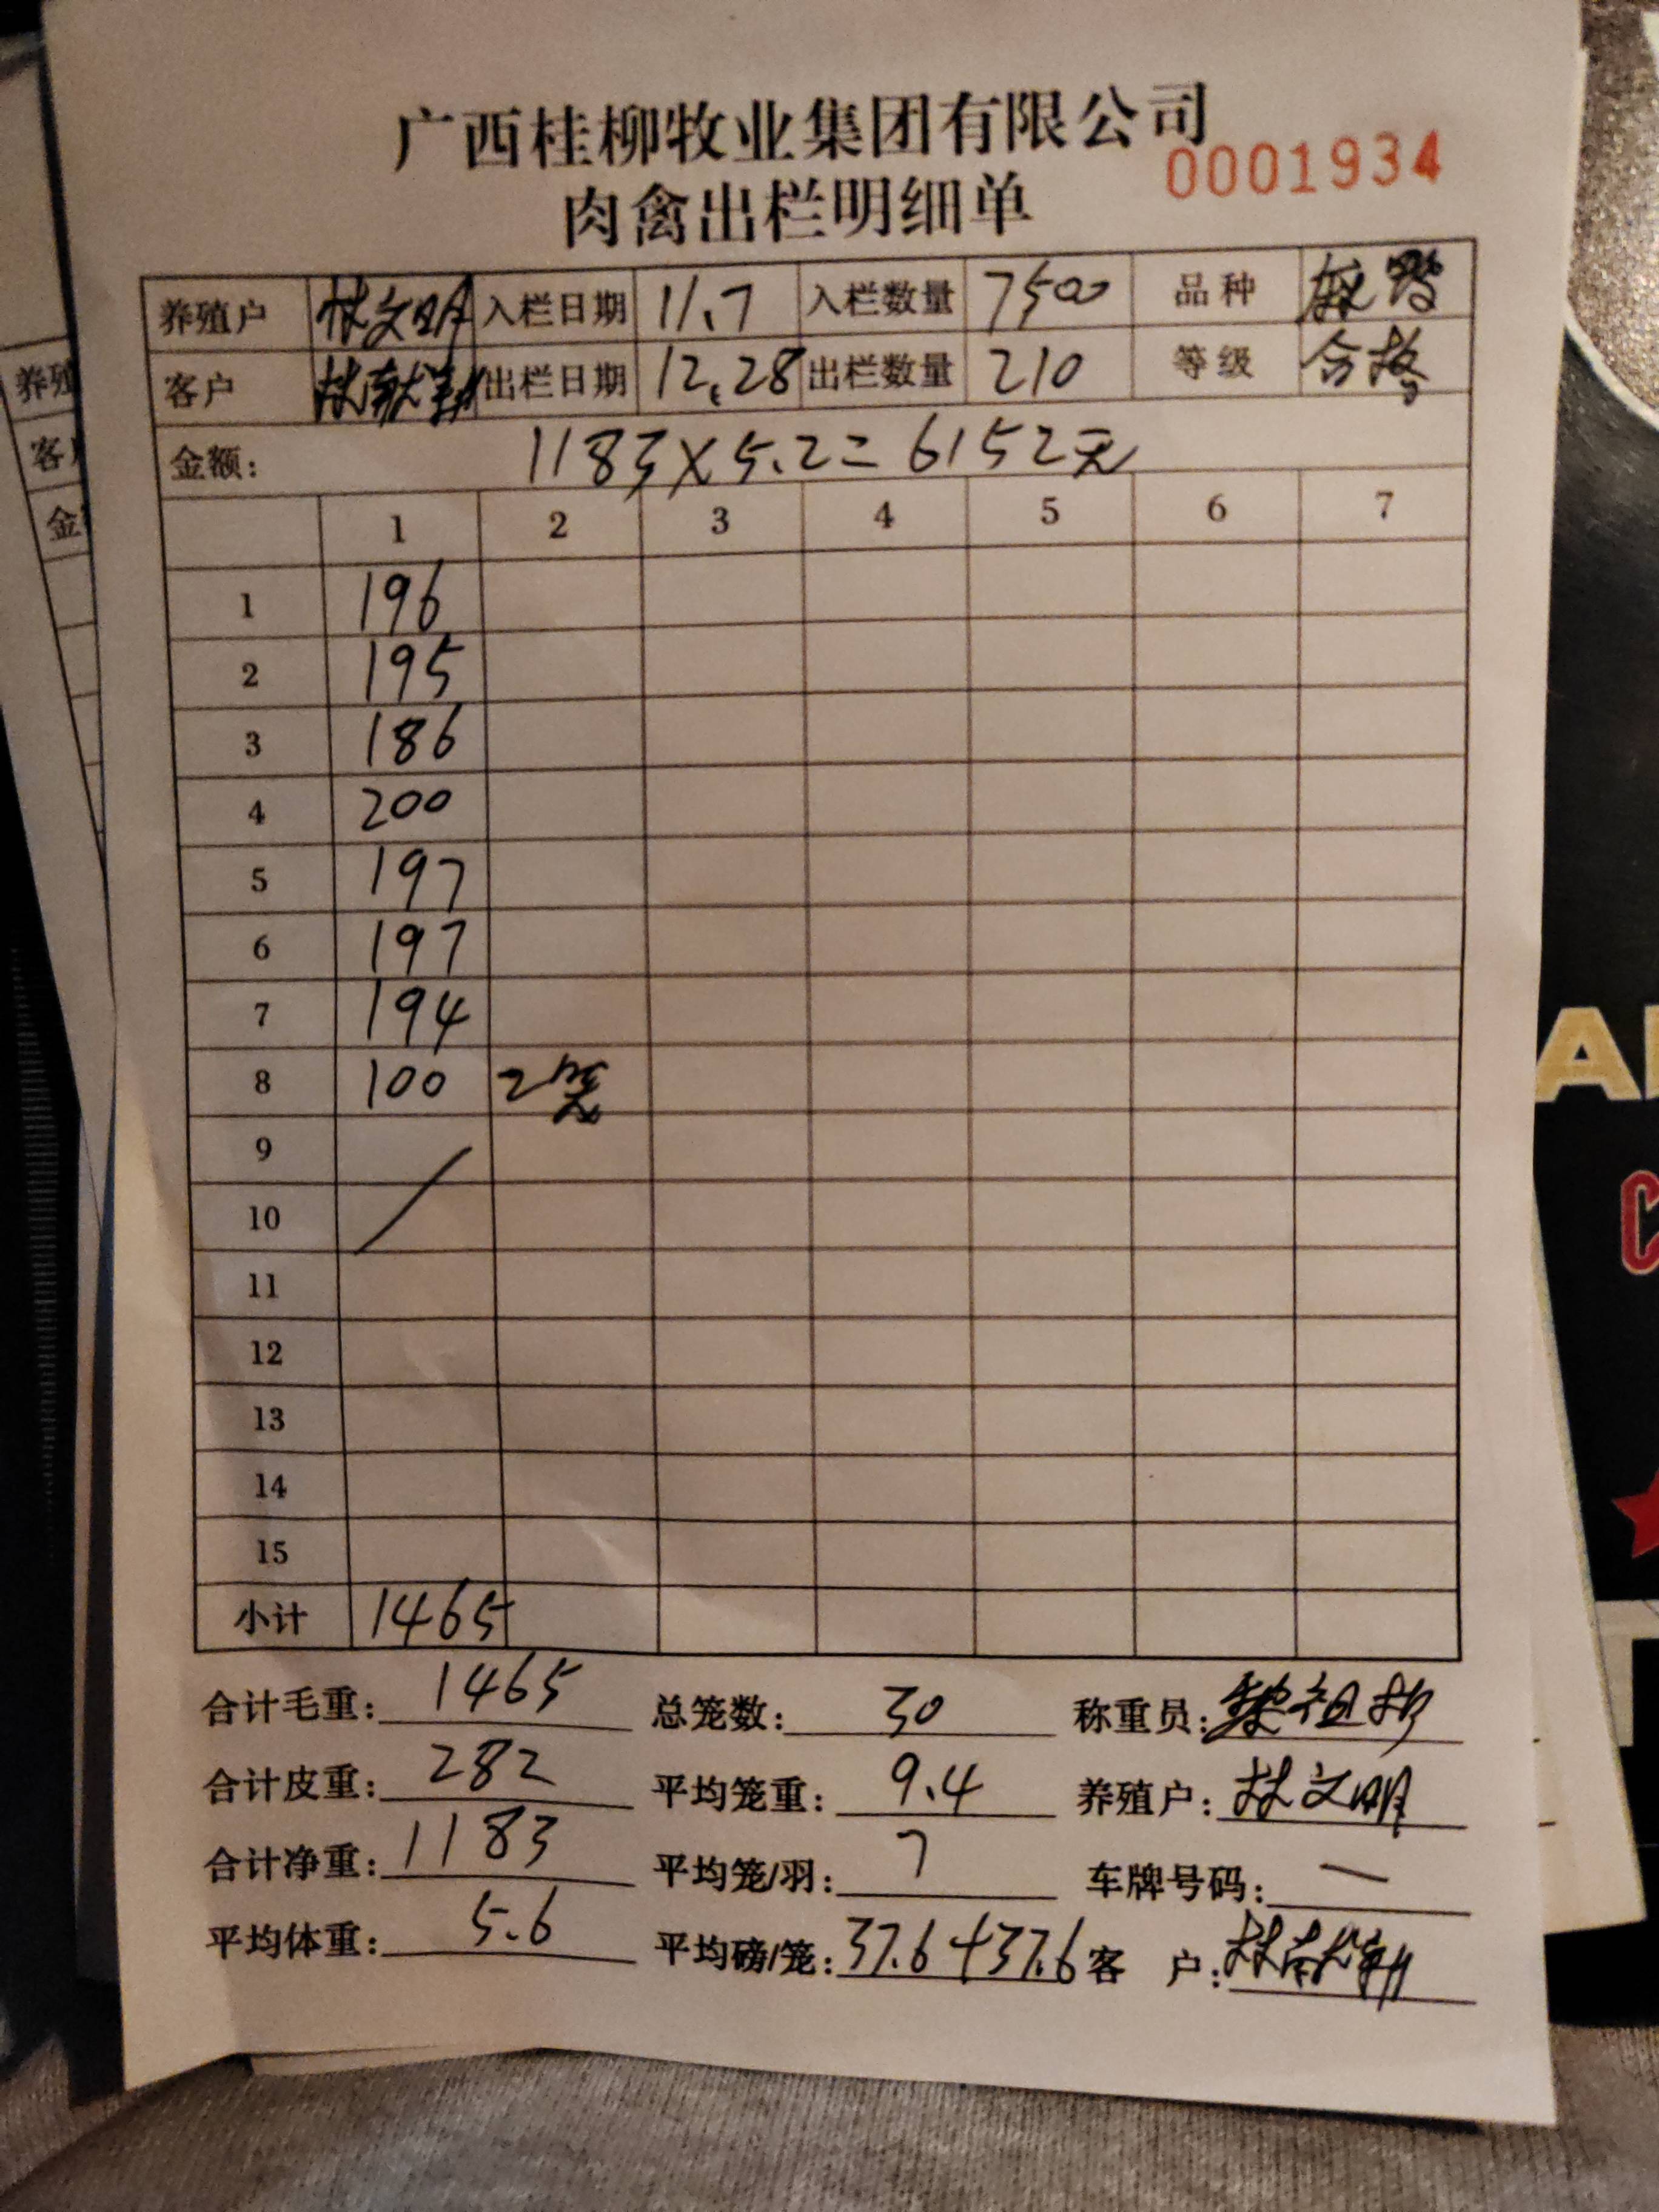 广西桂柳牧业集团有限公司
0001934
肉禽出栏明细单
养殖户 林文明 入栏日期 11.7 入栏数量 7500 品种 麻鸭
客户 出栏日期 12.28 出栏数量 210 等级 合格
金额: 1183×5.2=6152元
1 2 3 4 5 6 7
1 196
2 195
3 186
4 200
5 197
6 197
7 194
8 100 2笼
9
10
11
12
13
14
15
小计 1465
合计毛重: 1465 总笼数: 30 称重员:
合计皮重: 282 平均笼重: 9.4 养殖户: 林文明
合计净重: 1183 平均笼/羽: 7 车牌号码: 一
平均体重: 5.6 平均磅/笼: 37.6+37.6 客 户:
养殖
客户
金